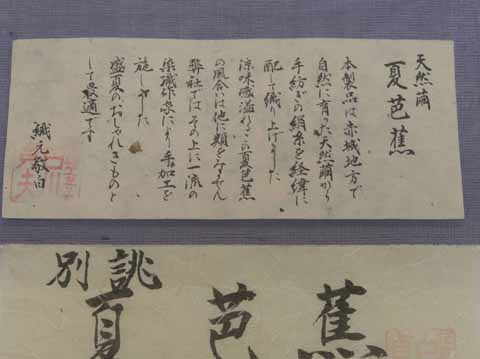 天然繭
夏芭蕉
本製品は赤城地方で
自然に育った天然繭から
手紡ぎの絹糸を経緯に
配して織り上げました
涼味感溢れるこの夏芭蕉
の風合いは他に類をみません
弊社ではその上に一流の
染織作家により手加工を
施しました
盛夏のおしゃれきものと
して最適です
織元敬白
誂別
夏芭蕉